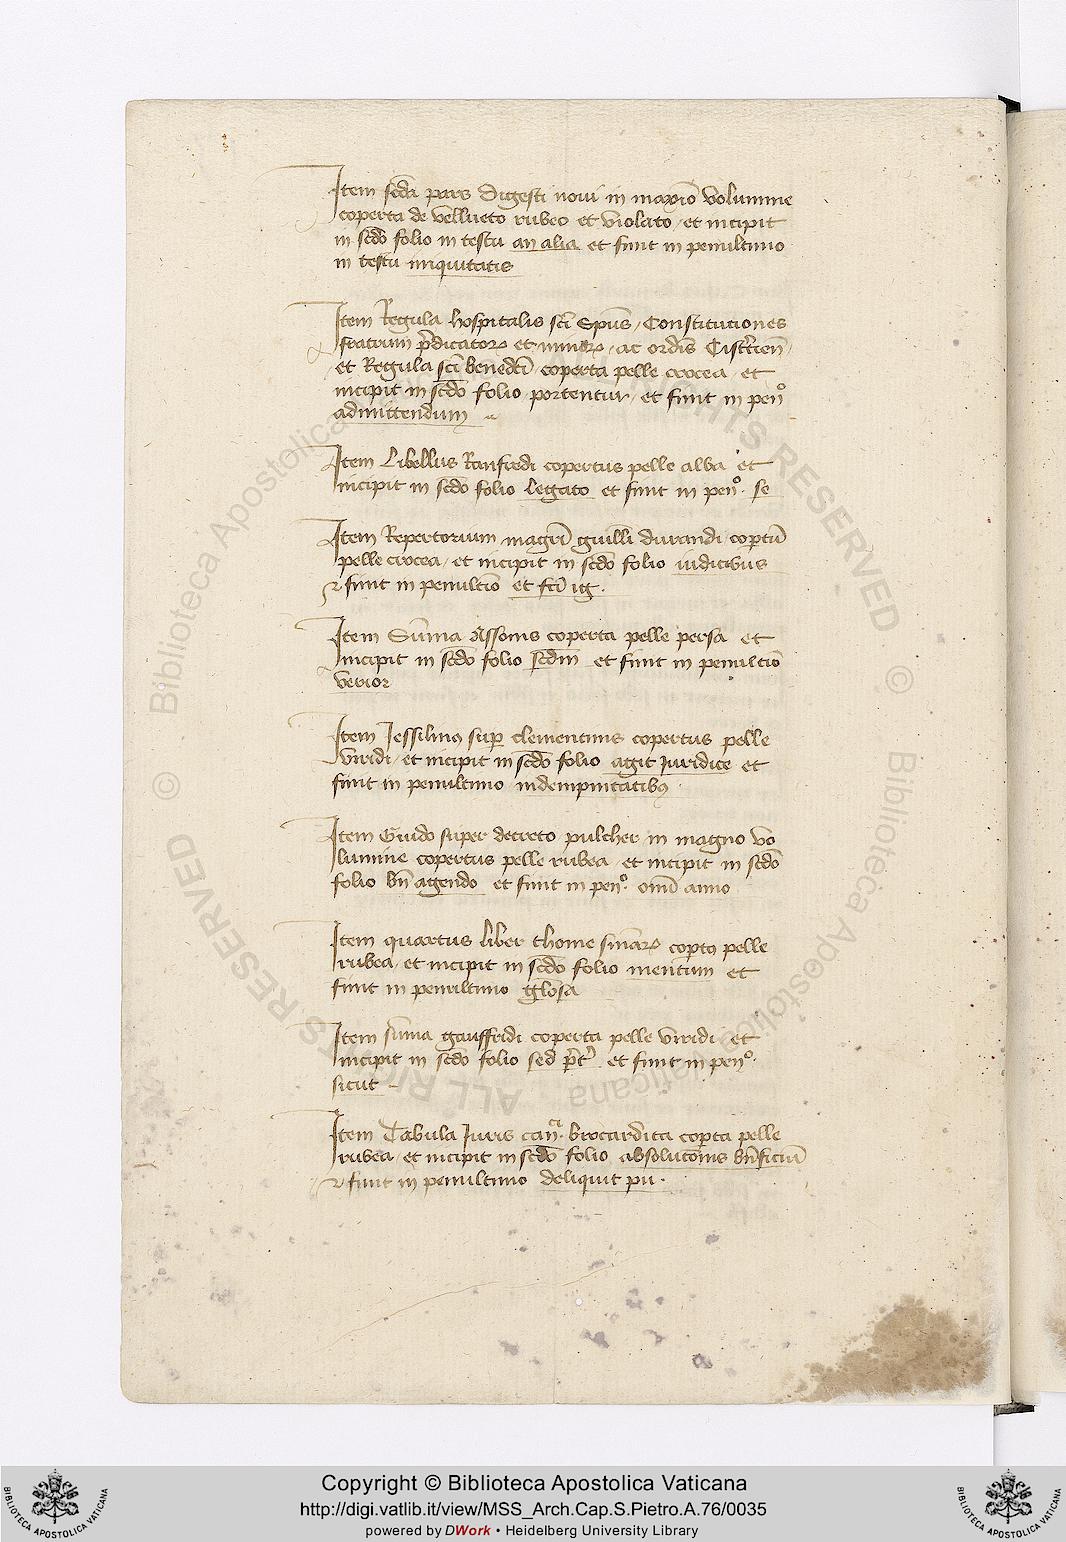 Item scda pars digesti noui in maximo volumine
coperta de vellueto rubeo et violato et incipit
in scdo folio in textu an alia et finit in penultimo
in textu iniquitatis
Item Regula hospitalis sci Spus Constituciones
fratrum predicatorum et minorum ac ordis Cistrcien
et Regula sci benedcti coperta pelle crocea et
incipit in scdo folio portentur et finit in peno
admittendum
Item Libellus Ranfredi copertus pelle alba et
incipit in scdo folio legato et finit in peno. se
Item Repertorium magri guilli durandi copertum
pelle crocea et incipit in scdo folio iudicibus
et finit in penultimo et sci ig.
Item Suma Assonis coperta pelle persa et
incipit in scdo folio scdm et finit in penultimo
verior
Item Jessilinus super clementinis copertus pelle
viridi et incipit in scdo folio agit iuridice et
finit in penultimo indempnitatibus
Item Guido super decreto pulcher in magno vo
lumine copertus pelle rubea et incipit in scdo
folio bn agendo et finit in peno. omi anno
Item quartus liber thome sniarum copertus pelle
rubea et incipit in scdo folio mentum et
finit in penultimo glosa
Item suma gauffredi coperta pelle viridi et
incipit in scdo folio sed et finit in peno.
sicut
Item Tabula Juris can. brocardica coperta pelle
rubea et incipit in scdo folio absolucionis bnficium
et finit in penultimo deliquit pu.
© Biblioteca Apostolica Vaticana ALL RIGHTS RESERVED
© Biblioteca Apostolica Vaticana ALL RIGHTS RESERVED
Copyright © Biblioteca Apostolica Vaticana
http://digi.vatlib.it/view/MSS_Arch.Cap.S.Pietro.A.76/0035
powered by DWork • Heidelberg University Library
BIBLIOTECA APOSTOLICA VATICANA
BIBLIOTECA APOSTOLICA VATICANA